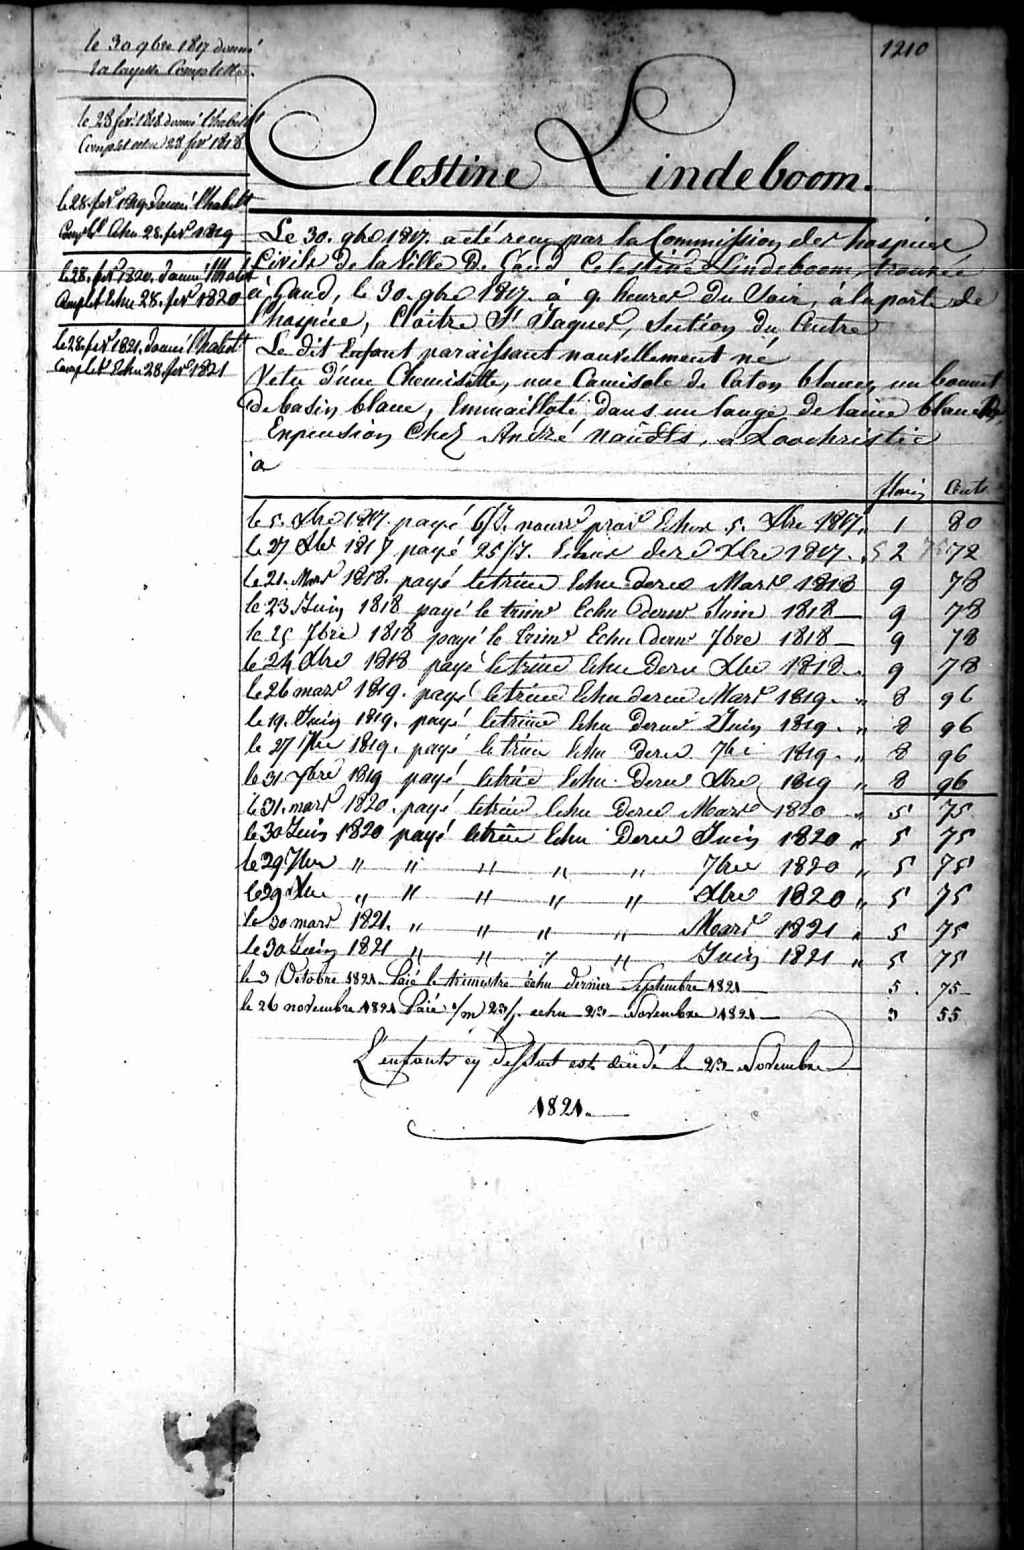 1210
le 30 9bre 1817 donné
la layette Complette.
le 28 fevr 1818 donné l'habillt
Complet echu 28 fevr 1818
le 28. fevr 1819. donné l'habillt
Complt Echu 28. fevr 1819
le 28. fevr 1820. donné l'habillt
Complet Echu 28. fevr 1820
le 28. fevr 1821. donné l'habillt
Complet Echu 28 fevr 1821
Celestine Lindeboom.
Le 30. 9bre 1817. a été reçu par la Commission des hospices
Civils de la Ville De Gand Celestine Lindeboom, trouvée
à Gand, le 30. 9bre 1817. à 9. heures Du Soir, à la porte de
l'hospice, Cloître St Jaques, Section du Centre
Le dit Enfant paraissant nouvellement né
Vetu d'une Chemisette, une Camisole de Coton blanc, un bonnet
de basin blanc, Emmailloté dans un lange de laine blanche,
En pension Chez André Naudts, a Loochristie
a
florins Cents
le 5. Xbre 1817. payé 6/J. nourre prove Echus 5. Xbre 1817. " 1 80
le 27 Xbre 1817 payé 25/J. Echus dere Xbre 1817. 2 72
le 21. Mars 1818. payé le trime Echu dere Mars 1818 9 78
le 23 Juin 1818 payé le trimr Echu dernr Juin 1818 — 9 78
le 25 7bre 1818 payé le trimr Echu dernr 7bre 1818 — 9 78
le 24 Xbre 1818 payé le trime Echu Dere Xbre 1818 — 9 78
le 26 mars 1819. payé le trime Echu dere Mars 1819. " 8 96
le 19. Juin 1819. payé le trime Echu Dere Juin 1819. " 8 96
le 27 7bre 1819. payé le trime Echu Dere 7bre 1819. " 8 96
le 31 Xbre 1819 payé le trime Echu Dere Xbre 1819 " 8 96
le 31. mars 1820. payé le trime Echu Dere Mars 1820 " 5 75
le 30 Juin 1820 payé le trime Echu Dere Juin 1820 " 5 75
le 29. 7bre " " " " " 7bre 1820 " 5 75
le 29 Xbre " " " " " Xbre 1820 " 5 75
le 30 mars 1821. " " " " Mars 1821 " 5 75
le 30 Juin 1821 " " " " Juin 1821 " 5 75
le 3 Octobre 1821 Paié le trimestre échu dernier Septembre 1821 — 5 75
le 26 novembre 1821 Paié 1/m 23/j. echu 23 Novembre 1821 — 3 55
L'enfant cy dessus est décédé le 23 Novembre
1821.